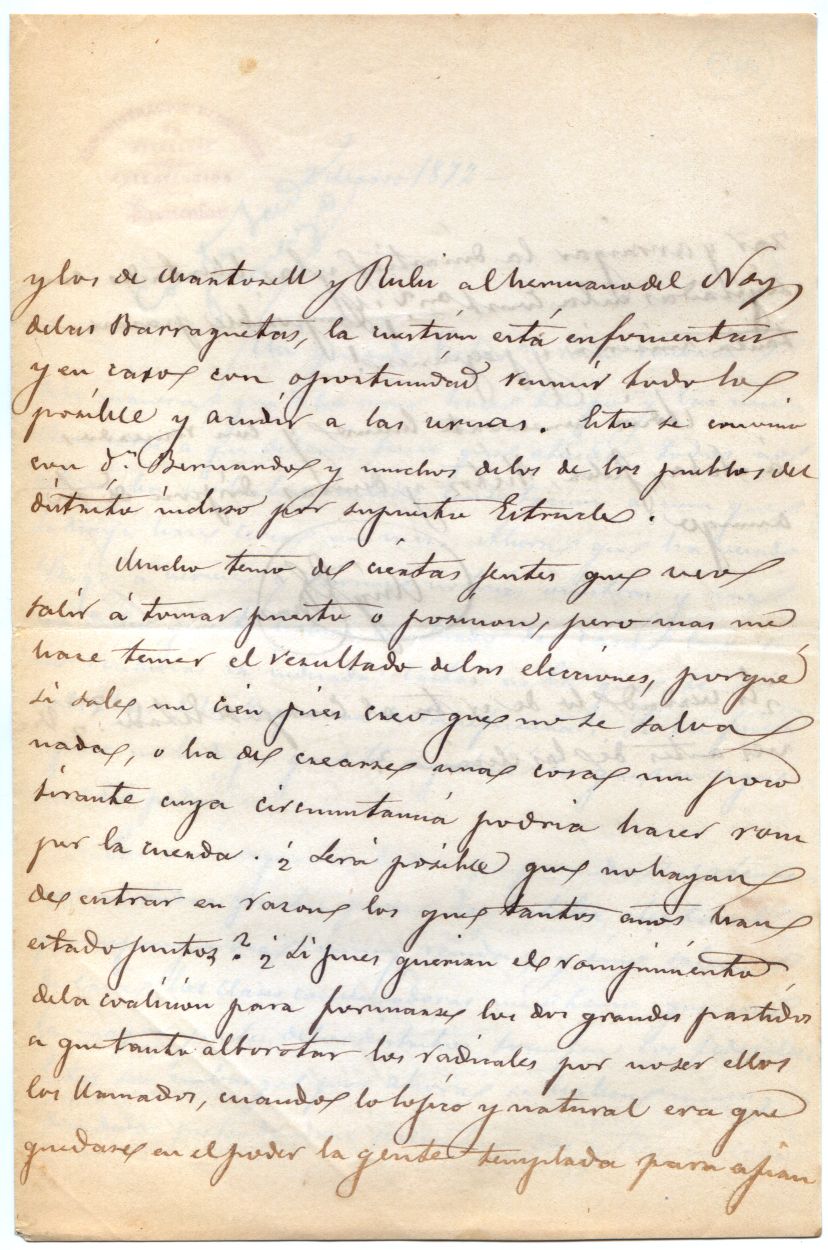 y los de Mantosell y Rubió al hermano del Noy
de las Barraquetas, la cuestión está en fomentar
y en caso con oportunidad reunir todo lo
posible y acudir a las urnas. Esto se convino
con Dn Bernardo y muchos de los de los pueblos del
distrito incluso por supuesto Estruch.
Mucho temo de ciertas gentes que veo
salir á tomar puesto o posicion, pero mas me
hace temer el resultado de las elecciones, porqué
si sale un cien pies creo que no se salva
nada, o ha de crearse una cosa un poco
tirante cuya circunstancia podria hacer rom
per la cuerda. ¿ Será posible que no hayan
de entrar en razon los que tantos años han
estado juntos? ¿ Si pues querian el rompimiento
de la coalicion para formarse los dos grandes partidos
a que tanto alborotar los radicales por no ser ellos
los llamados, cuando lo lojico y natural era que
quedase en el poder la gente templada para afian
1872